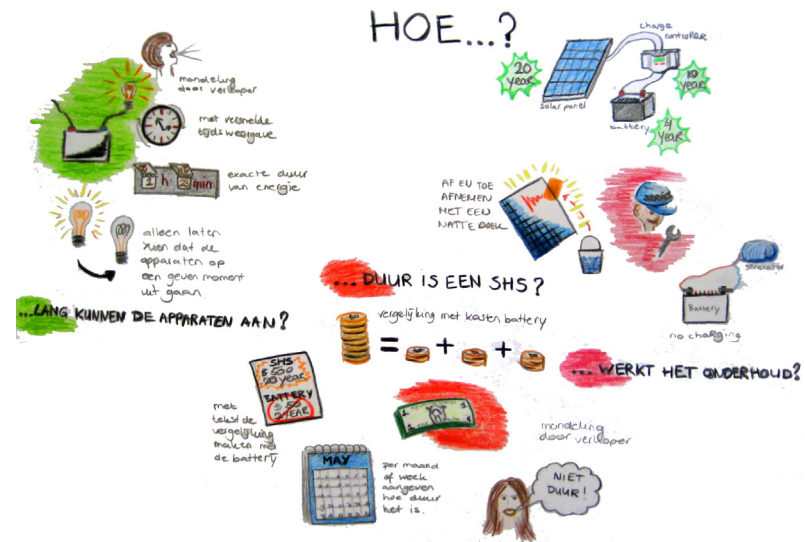 HOE...?
mondeling
door verkoper
met versnelde
tijdsweergave
1 h
min
exacte duur
van energie
alleen laten
zien dat de
apparaten op
een geven moment
uit gaan
...LANG KUNNEN DE APPARATEN AAN?
charge
controller
20
year
solar panel
10
year
battery
4
year
AF EN TOE
AFNEMEN
MET EEN
NATTE DOEK
SERVICE
generator
Battery
no charging
...WERKT HET ONDERHOUD?
...DUUR IS EEN SHS?
vergelijking met kosten battery
= + +
SHS
$ 500
20 year
BATTERY
$ 50
2 YEAR
met
tekst de
vergelijking
maken met
de battery
MAY
per maand
of week
aangeven
hoe duur
het is.
mondeling
door verkoper
NIET
DUUR!